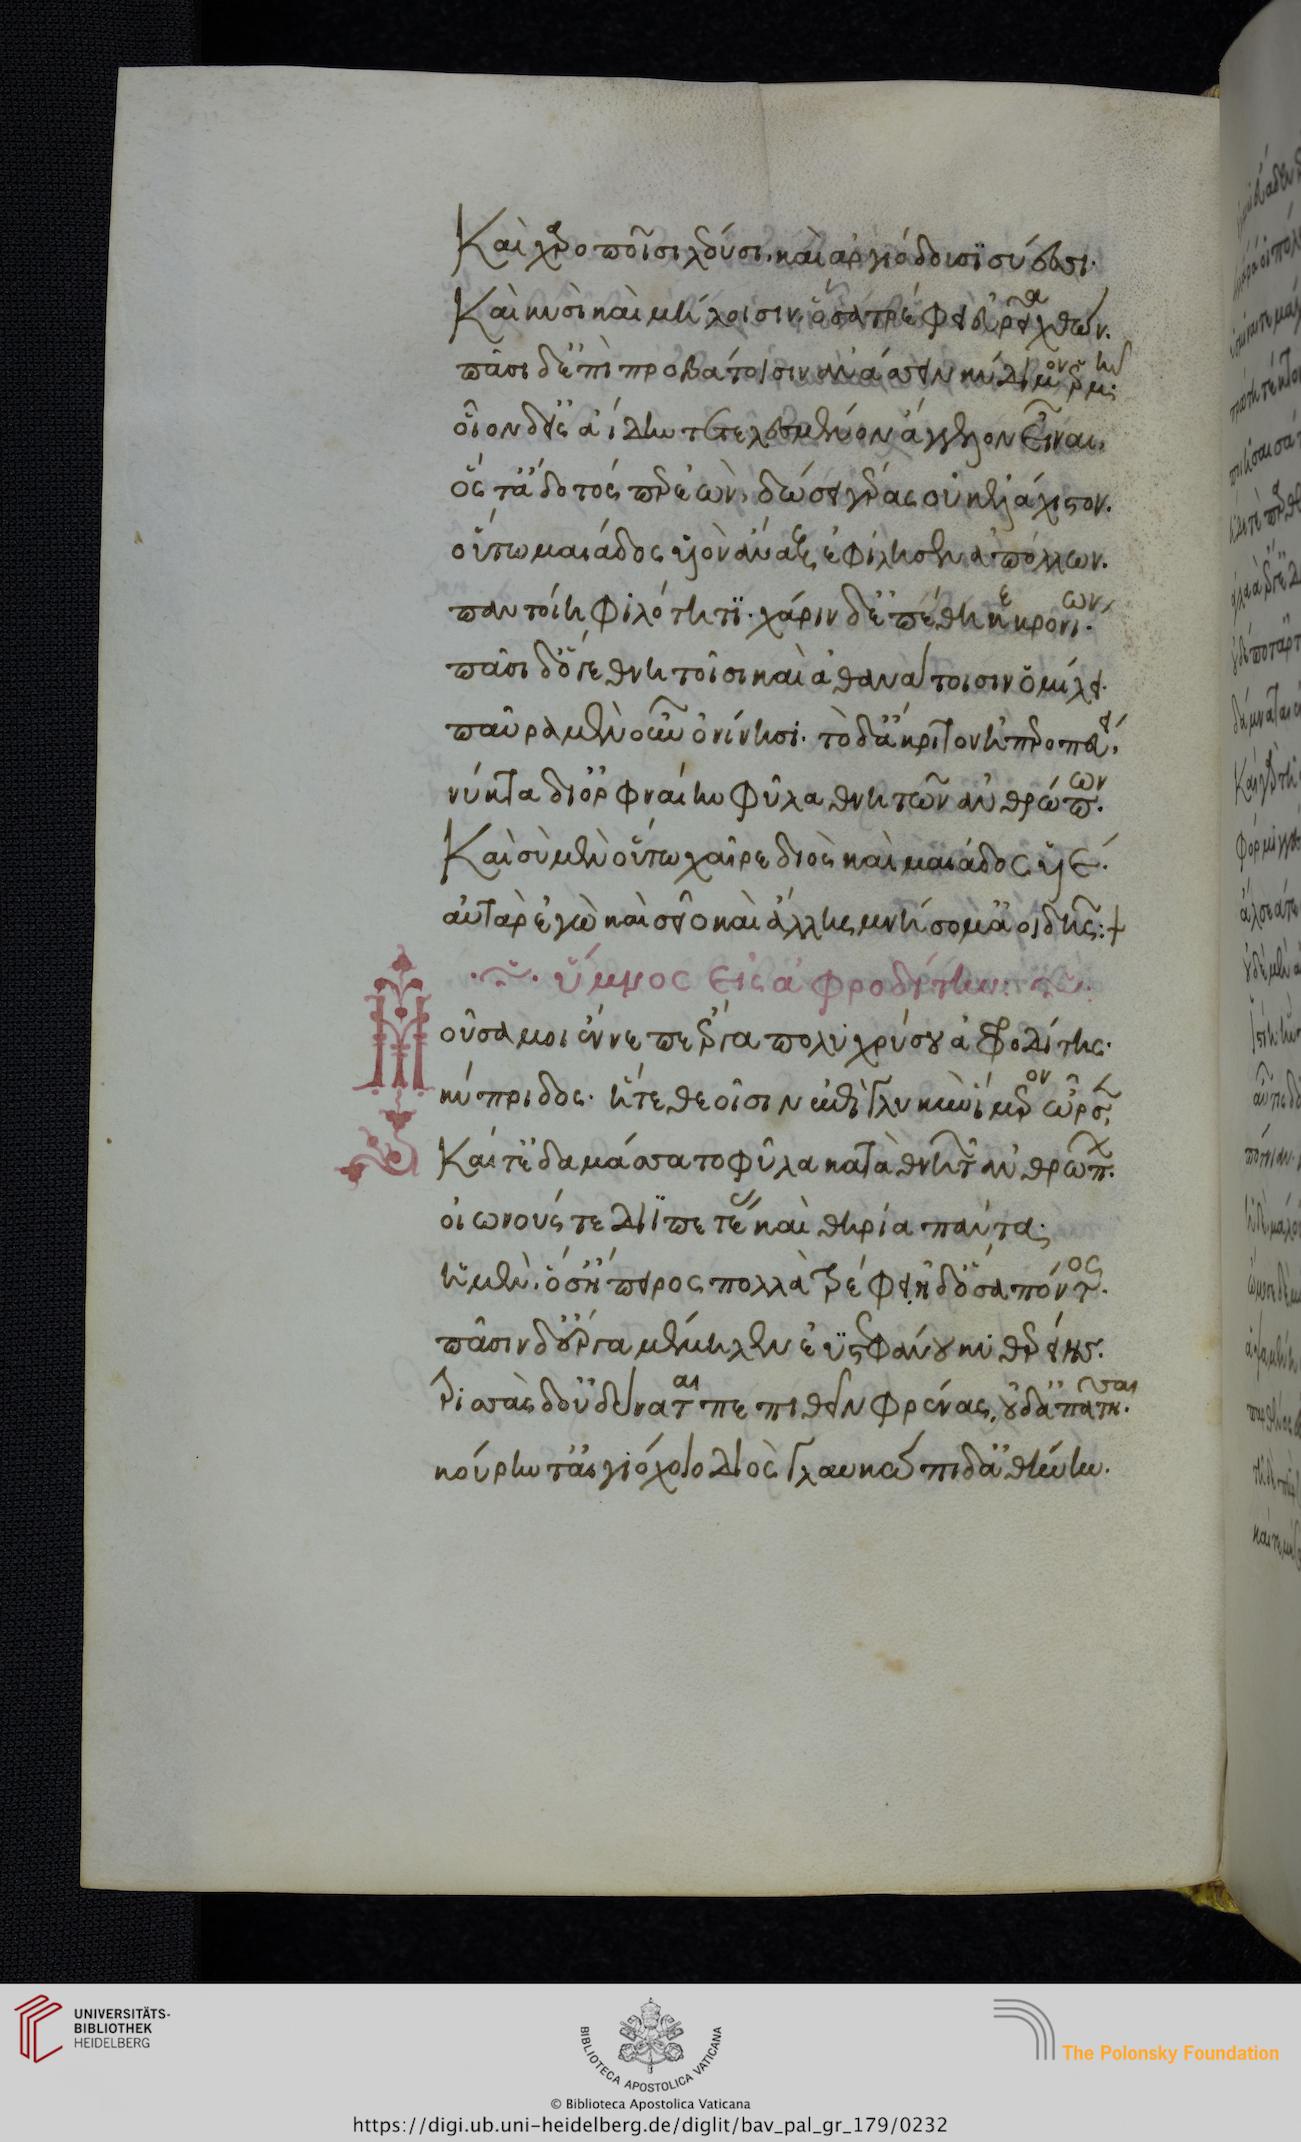 Καὶ χαροποῖσι λέουσι. καὶ ἀργιόδουσι σύεσσι.
Καὶ κυσὶ καὶ μήλοισιν, ὅσα τρέφει εὐρεῖα χθών.
πᾶσι δ' ἐπὶ προβάτοισιν ἀνάσσειν κύδιμον ἑρμῆν.
οἶον δ' εἰς ἀΐδην τετελεσμένον ἄγγελον εἶναι,
ὅς τ' ἄδοτός περ ἐὼν, δώσει γέρας οὐκ ἐλάχιστον.
οὕτω μαιάδος υἱὸν ἄναξ ἐφίλησεν ἀπόλλων.
παντοίη φιλότητι. χάριν δ' ἐπέθηκε κρονίων.
πᾶσι δ' ὅγε θνητοῖσι καὶ ἀθανάτοισιν ὁμιλεῖ.
παῦρα μὲν οὖν ὀνίνησι. τὸ δ' ἄκριτον ἠπεροπεύει.
νύκτα δι' ὀρφναίην φῦλα θνητῶν ἀνθρώπων.
Καὶ σὺ μὲν οὕτω χαῖρε διὸς καὶ μαιάδος υἱέ.
αὐτὰρ ἐγὼ καὶ σεῖο καὶ ἄλλης μνήσομ' ἀοιδῆς:+
ὕμνος εἰς ἀφροδίτην:
Μοῦσα μοι ἔννεπε ἔργα πολυχρύσου ἀφροδίτης.
κύπριδος. ἥτε θεοῖσιν ἐπὶ γλυκὺν ἵμερον ὦρσε,
Καί τ' ἐδαμάσσατο φῦλα καταθνητῶν ἀνθρώπων.
οἰωνούς τε διιπετέας καὶ θηρία πάντα.
ἠμὲν ὅσ' ἤπειρος πολλὰ τρέφει ἠδ' ὅσα πόντος.
πᾶσιν δ' ἔργα μέμηλεν ἐϋστεφάνου κυθερείης.
τρισσὰς δ' οὐ δύναται πεπιθεῖν φρένας, οὐδ' ἀπατῆσαι.
κούρην τ' αἰγιόχοιο διὸς γλαυκώπιδ' ἀθήνην.
UNIVERSITÄTS-
BIBLIOTHEK
HEIDELBERG
BIBLIOTECA APOSTOLICA VATICANA
The Polonsky Foundation
© Biblioteca Apostolica Vaticana
https://digi.ub.uni-heidelberg.de/diglit/bav_pal_gr_179/0232